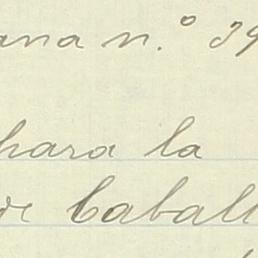 ana n.º 39
para la
de Caball